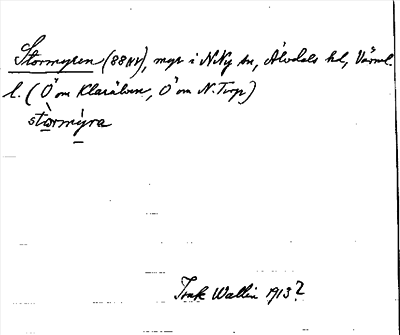 Stormyren (88NV), myr i N.Ny sn, Älvdals hd, Värml.
l. (Ö om Klarälven, Ö om N.Torp)
stòrmỳra
Wallin 1913?